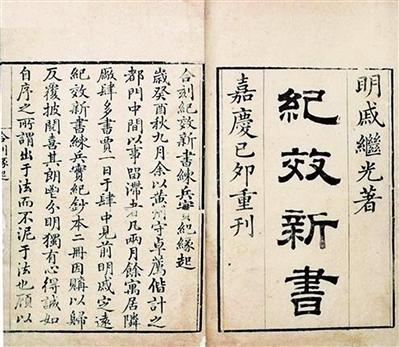 明戚繼光著
紀效新書
嘉慶己卯重刊
合刻紀效新書練兵實紀緣起
歲癸酉秋九月余以黃州守卓薦偕計之
都門中間以事留滯者凡兩月餘寓居隣
厰肆多書賈一日于肆中見前明戚定遠
紀效新書練兵實紀鈔本二冊因購以歸
反覆披閱喜其朗分明獨有心得誠如
自序之所謂出于法而不泥于法也顧以
合刻緣起